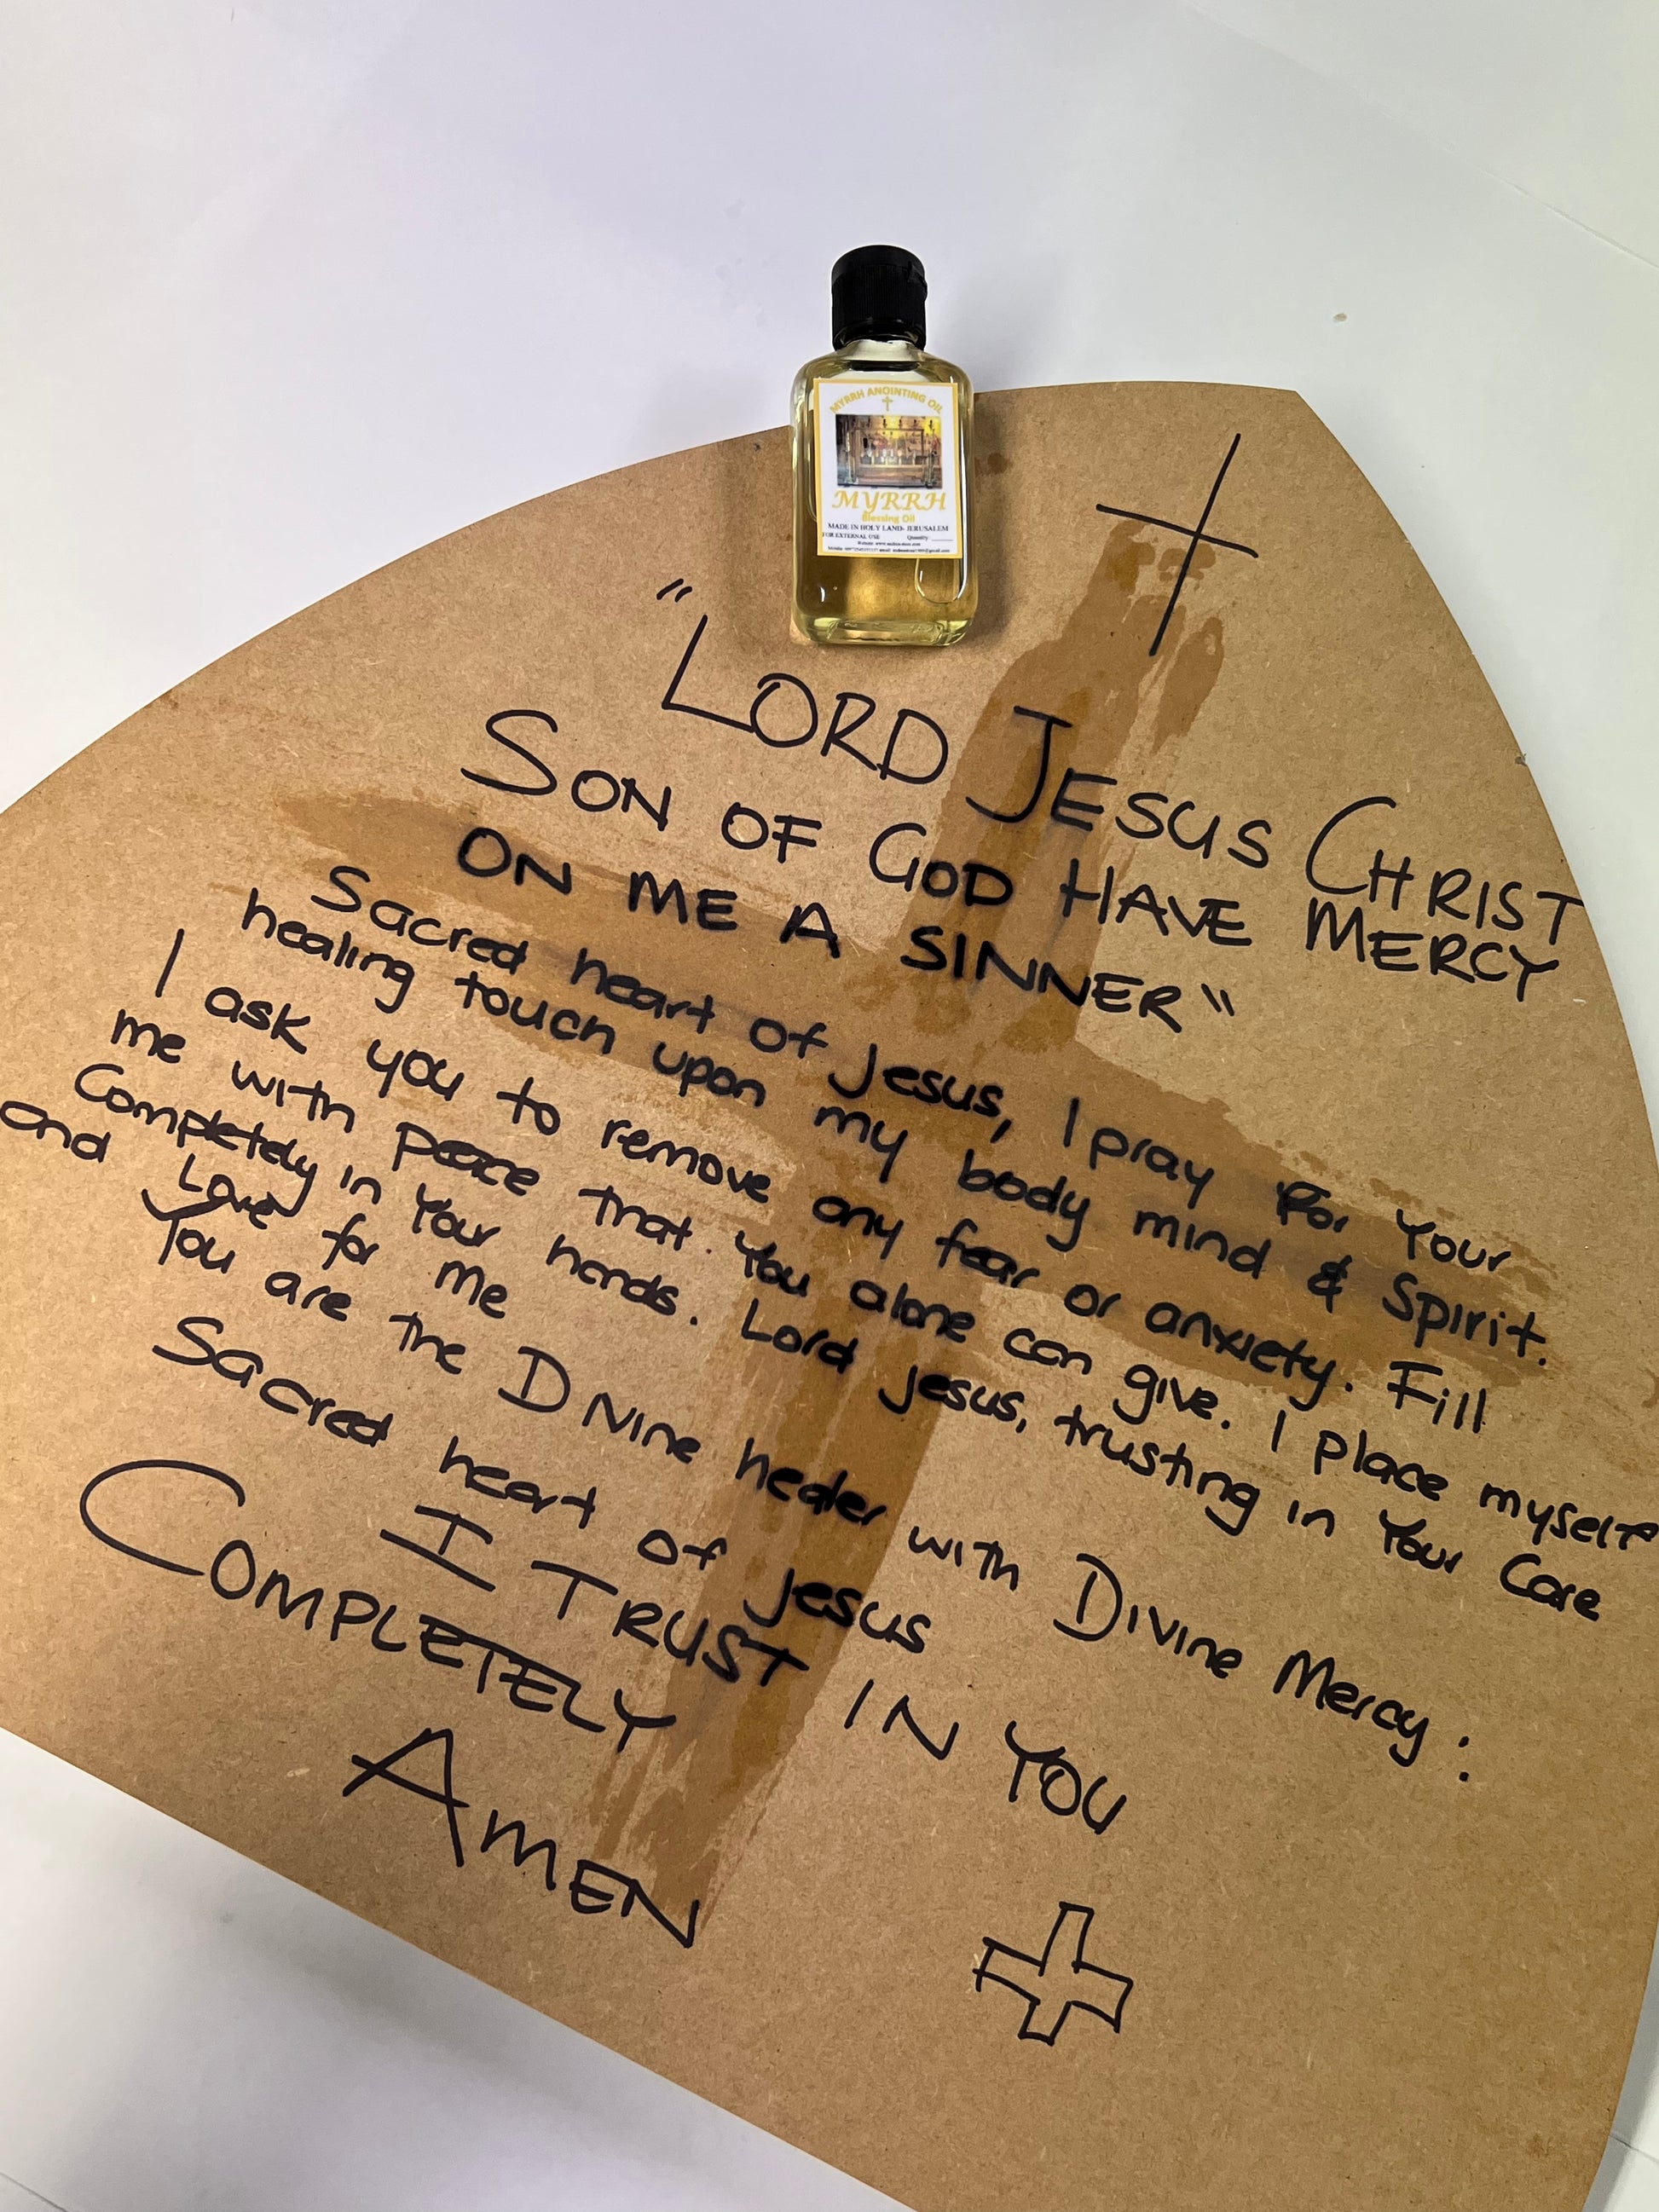 MYRRH ANOINTING OIL
MYRRH
Blessing Oil
MADE IN HOLY LAND- JERUSALEM
FOR EXTERNAL USE Quantity:
"LORD JESUS CHRIST
SON OF GOD HAVE MERCY
ON ME A SINNER"
Sacred heart of Jesus, I pray For Your
healing touch upon my body mind & Spirit.
I ask you to remove any fear or anxiety. Fill
me with peace that You alone can give. I place myself
Completely in Your hands. Lord Jesus, trusting in Your Care
and Love for me
You are the Divine healer with Divine Mercy:
Sacred heart of Jesus
I TRUST IN YOU
COMPLETELY
AMEN